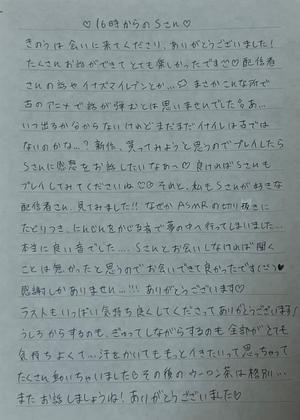 ♡16時からのSさん♡
きのうは会いに来てくださり、ありがとうございました!
たくさんお話ができてとても楽しかったです♡配信者
さんの話やイナズマイレブンとか...まさかこんな所で
古のアニメで話が弾むとは思いませんでした
いつ出るか分からないけれどまだまだイナイレは古では
ないのかな...?新作、買ってみようと思うのでプレイしたら
Sさんに感想をお話したいなあ〜♡良ければSさんも
プレイしてみてくださいね♡それと、私もSさんが好きな
配信者さん、見てみました!!なぜかASMRの切り抜きに
たどりつき、にんじんをかじる音で夢の中へ行ってしまいました...
本当に良い音でした....Sさんとお会いしなければ聞く
ことは無かったと思うのでお会いできて良かったです(ごごう♥
感謝しかありません...!!!ありがとうございます♡
ラストもいっぱい気持ち良くしてくださってありがとうございます!
うしろからするのも、ぎゅってしながらするのも全部がとても
気持ちよくて...汗をかいてももっとイきたいって思っちゃって
たくさん動いちゃいましたその後のウーロン茶は格別...
またお話しましょうね!ありがとうございました♡